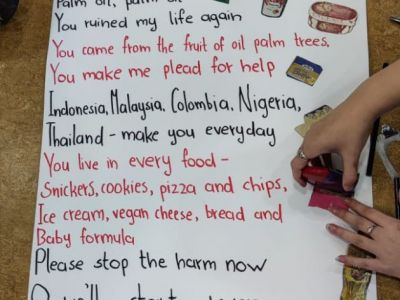 Palm oil, palm oil
You ruined my life again
You came from the fruit of oil palm trees,
You make me plead for help
Indonesia, Malaysia, Colombia, Nigeria,
Thailand - make you everyday
You live in every food -
Snickers, cookies, pizza and chips,
Ice cream, vegan cheese, bread and
Baby formula
Please stop the harm now